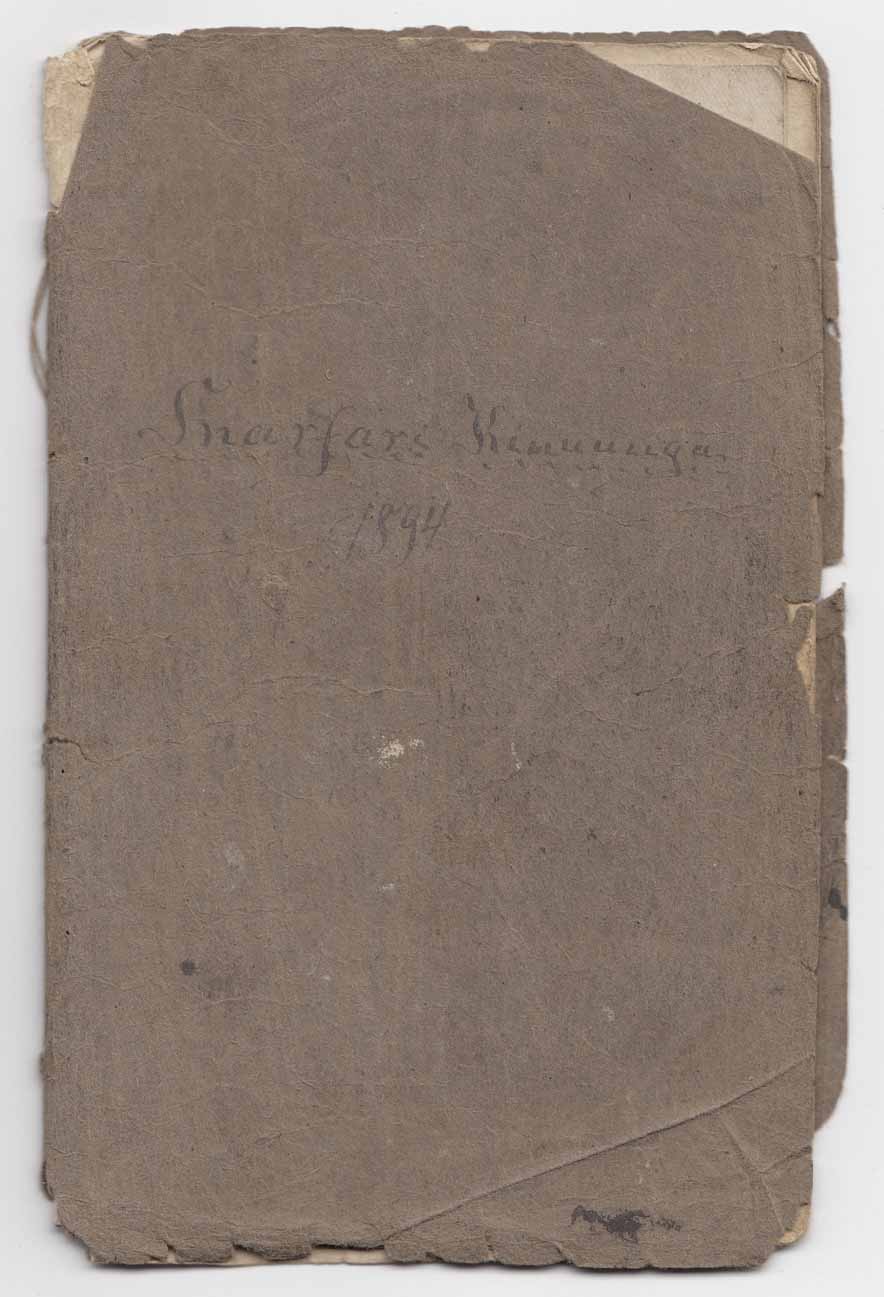 Snarfari Kinnunga
1894